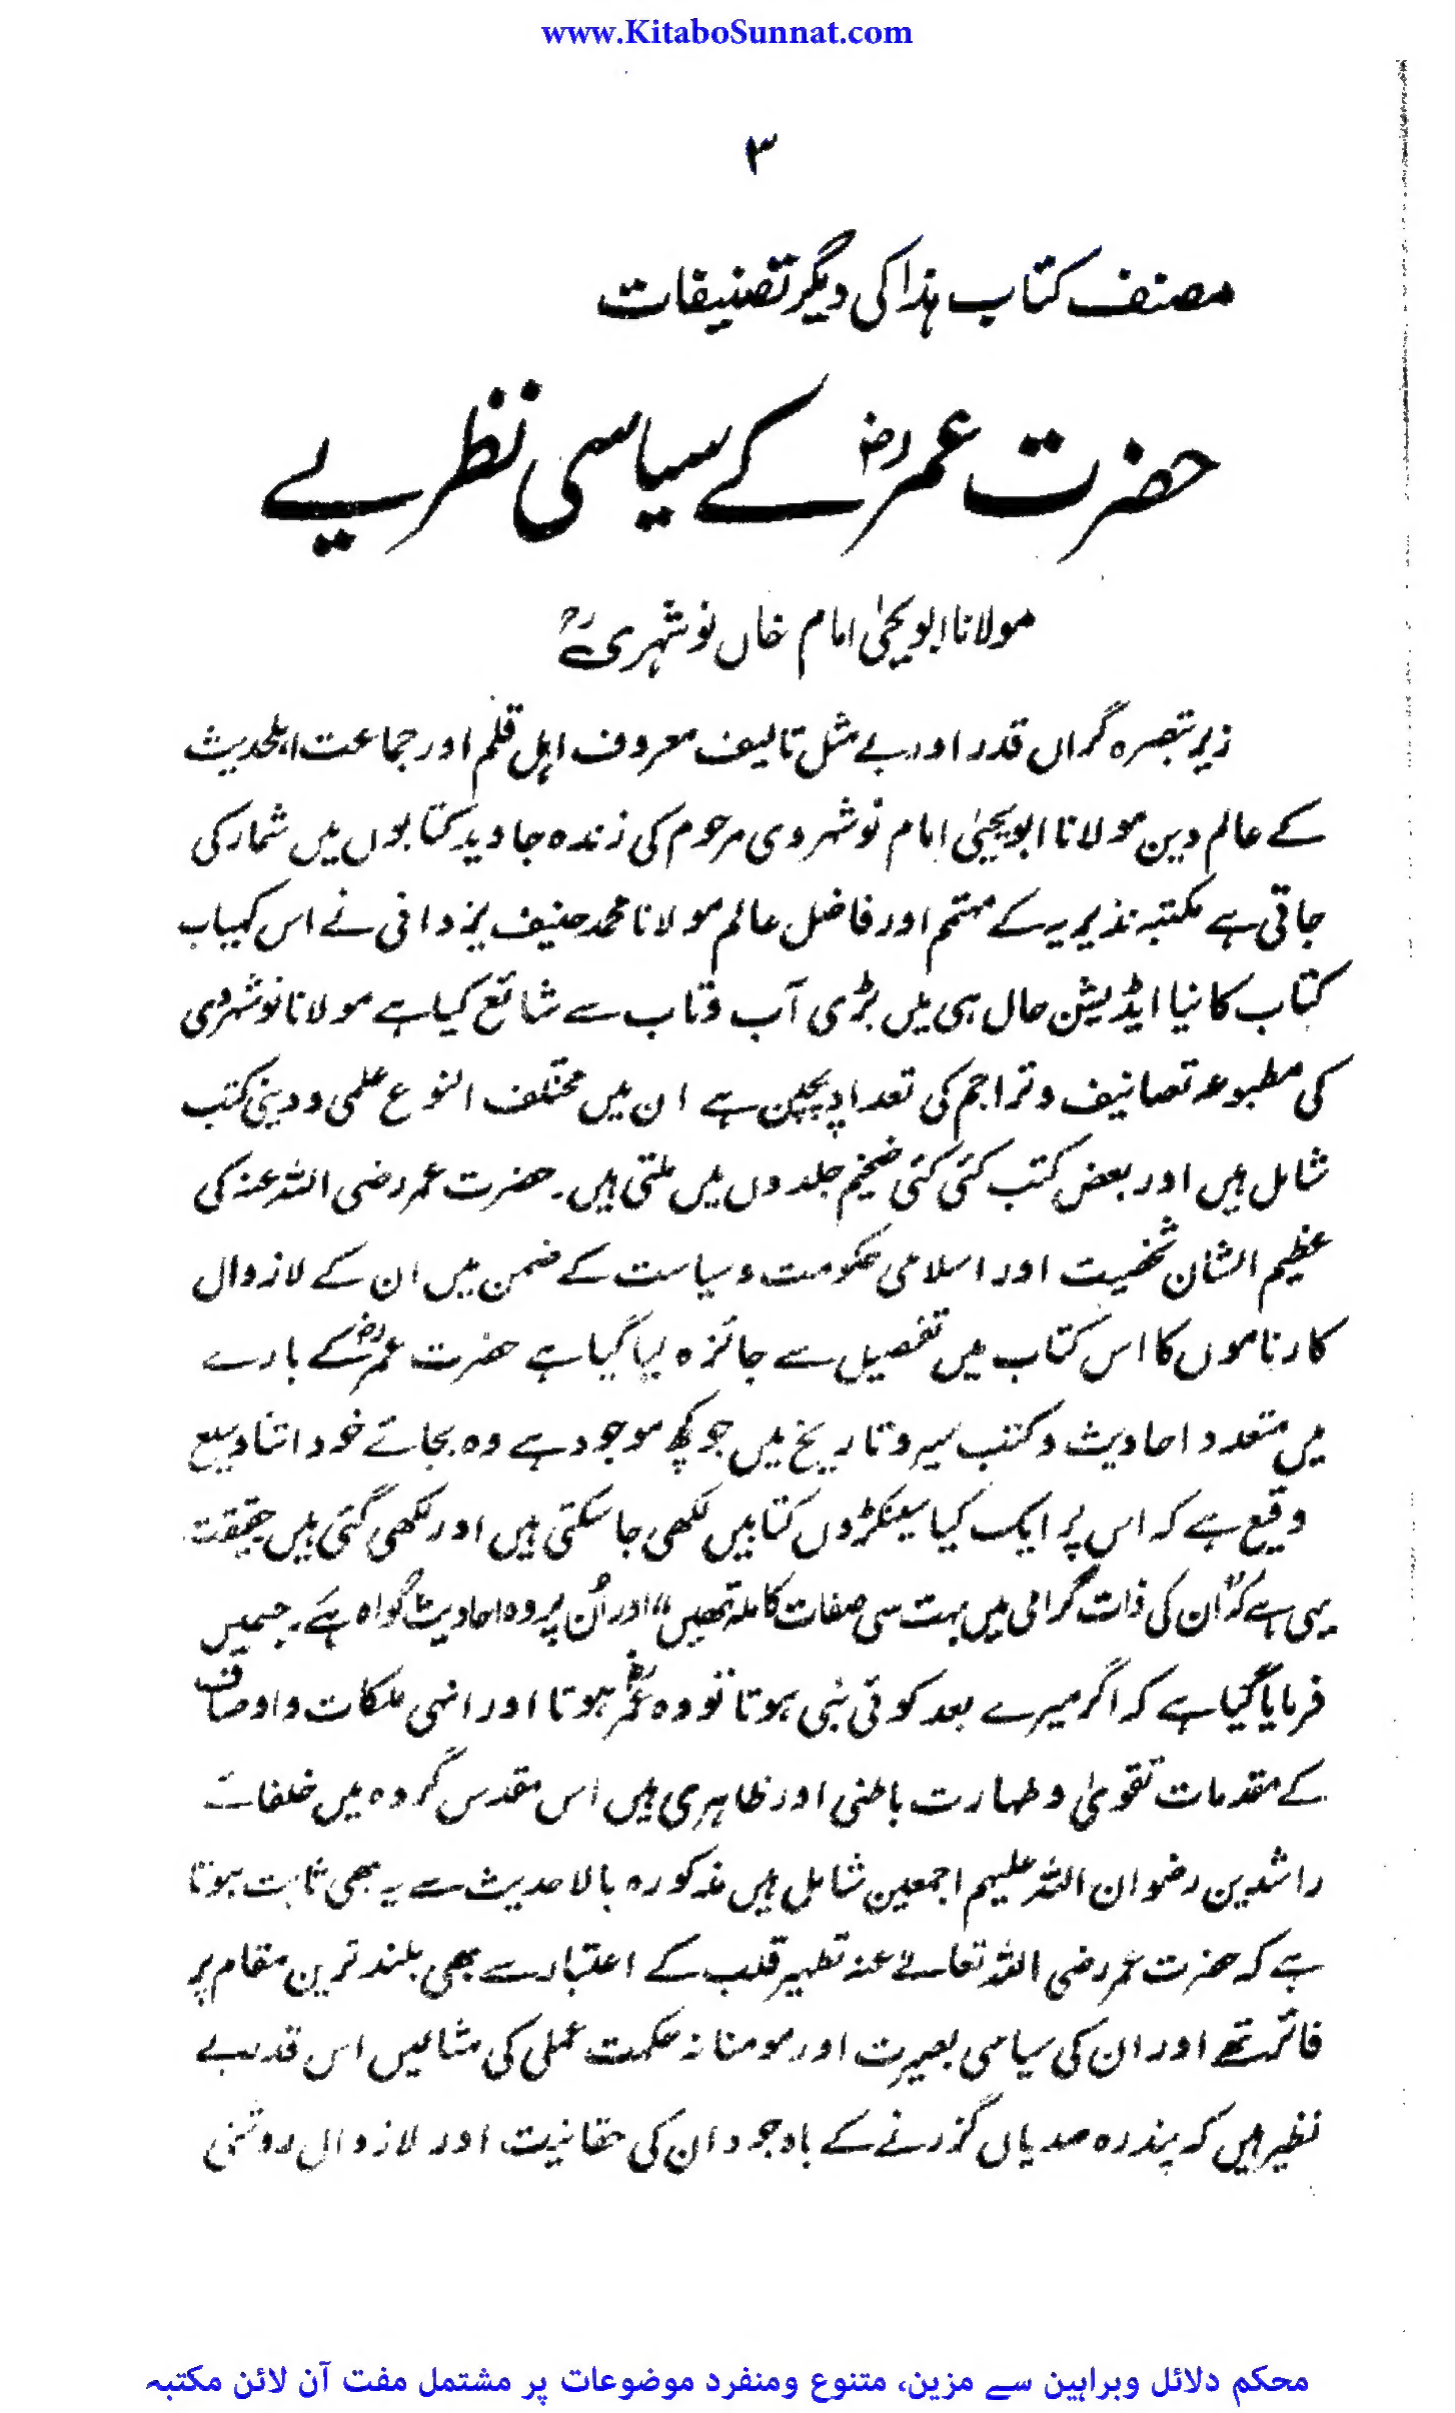 www.KitaboSunnat.com
۳
مصنف کتاب ہذا کی دیگر تصنیفات
حضرت عمرؓ کے سیاسی نظریے
مولانا ابویحیٰی امام خاں نوشہریؒ
زیر تبصرہ گراں قدر اور بے مثل تالیف معروف اہل قلم اور جماعت اہلحدیث
کے عالم دین مولانا ابویحییٰ امام نوشہروی مرحوم کی زندہ جاوید کتابوں میں شمار کی
جاتی ہے مکتبہ نذیریہ کے مہتمم اور فاضل عالم مولانا محمد حنیف یزدانی نے اس کمیاب
کتاب کا نیا ایڈیشن حال ہی میں بڑی آب وتاب سے شائع کیا ہے مولانا نوشہروی
کی مطبوعہ تصانیف و تراجم کی تعداد پچپن ہے ان میں مختلف النوع علمی و دینی کتب
شامل ہیں اور بعض کتب کئی کئی ضخیم جلدوں میں ملتی ہیں۔ حضرت عمر رضی اللہ عنہ کی
عظیم الشان شخصیت اور اسلامی حکومت و سیاست کے ضمن میں ان کے لازوال
کارناموں کا اس کتاب میں تفصیل سے جائزہ لیا گیا ہے حضرت عمرؓ کے بارے
میں متعدد احادیث و کتب سیر و تاریخ میں جو کچھ موجود ہے وہ بجائے خود اتنا وسیع
وقیع ہے کہ اس پر ایک کیا سینکڑوں کتابیں لکھی جا سکتی ہیں اور لکھی گئی ہیں حقیقت
یہی ہے کہ "اُن کی ذات گرامی میں بہت سی صفات کاملہ تھیں" اور اُن پر وہ احادیث گواہ ہے۔ جسمیں
فرمایا گیا ہے کہ اگر میرے بعد کوئی نبی ہوتا تو وہ عمرؓ ہوتا اور انہی ملکات و اوصاف
کے مقدمات تقویٰ و طہارت باطنی اور ظاہری ہیں اس مقدس گروہ میں خلفائے
راشدین رضوان اللہ علیہم اجمعین شامل ہیں مذکورہ بالا حدیث سے یہ بھی ثابت ہوتا
ہے کہ حضرت عمر رضی اللہ تعالے عنہ تطہیر قلب کے اعتبار سے بھی بلند ترین مقام پر
فائز تھے اور ان کی سیاسی بصیرت اور مومنانہ حکمت عملی کی مثالیں اس قدر بے
نظیر ہیں کہ پندرہ صدیاں گزرنے کے باوجود ان کی حقانیت اور لازوال روشنی
محکم دلائل وبراہین سے مزین، متنوع ومنفرد موضوعات پر مشتمل مفت آن لائن مکتبہ